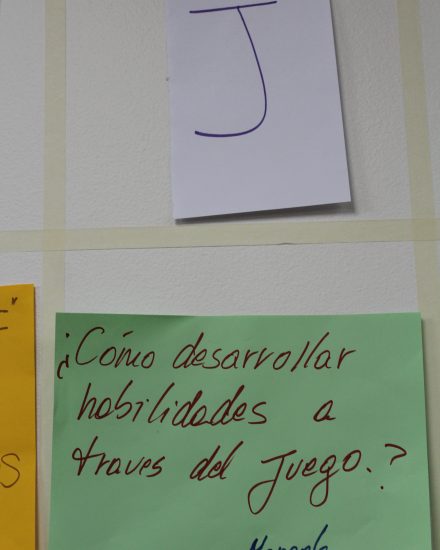 J
¿Cómo desarrollar
habilidades a
traves del Juego.?
"
S